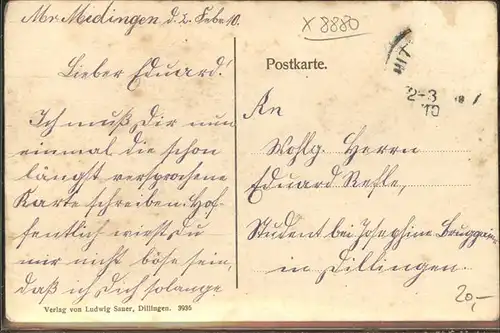 Mr. Medingen d. 2. Febr. 10.
x 8880
Lieber Eduard!
Ich muß Dir nun
einmal die schon
längst versprochene
Karte schreiben. Hof-
fentlich wirst Du
mir nicht böse sein,
daß ich Dich solange
Verlag von Ludwig Sauer, Dillingen. 3936
Postkarte.
2-3
10
An
Wohlg. Herrn
Eduard Refle,
Student bei Josephine
in Dillingen.
20,-